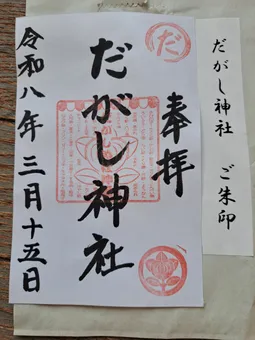 奉拝
だ
だがし神社
令和八年三月十五日
だがし神社 ご朱印